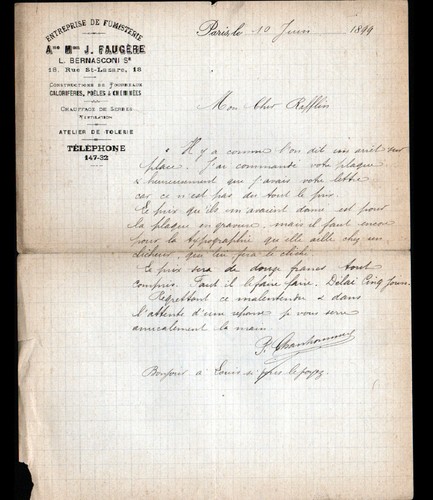 ENTREPRISE DE FUMISTERIE
Anne Mon J. FAUGÈRE
L. BERNASCONI Sr
18, Rue St-Lazare, 18
CONSTRUCTIONS DE FOURNEAUX
CALORIFÈRES, POÊLES & CHEMINÉES
CHAUFFAGE DE SERRES
VENTILATION
ATELIER DE TOLERIE
TÉLÉPHONE
147-32
Paris, le 10 Juin 1899
Mon Cher
Il y a comme l'on dit un arrêt sur
place. J'ai commandé votre plaque
& heureusement que j'avais votre lettre
car ce n'est pas du tout le prix
Le prix qu'ils m'avaient donné est pour
la plaque en gravure, mais il faut encore
pour la typographie qu'elle aille chez un
clicheur, qui en fera le cliché
Le prix sera de douze francs tout
compris. Faut il le faire faire. Délai Cinq jours.
Regrettant ce malentendu & dans
l'attente d'une réponse je vous serre
amicalement la main
Bonjour à Louis si